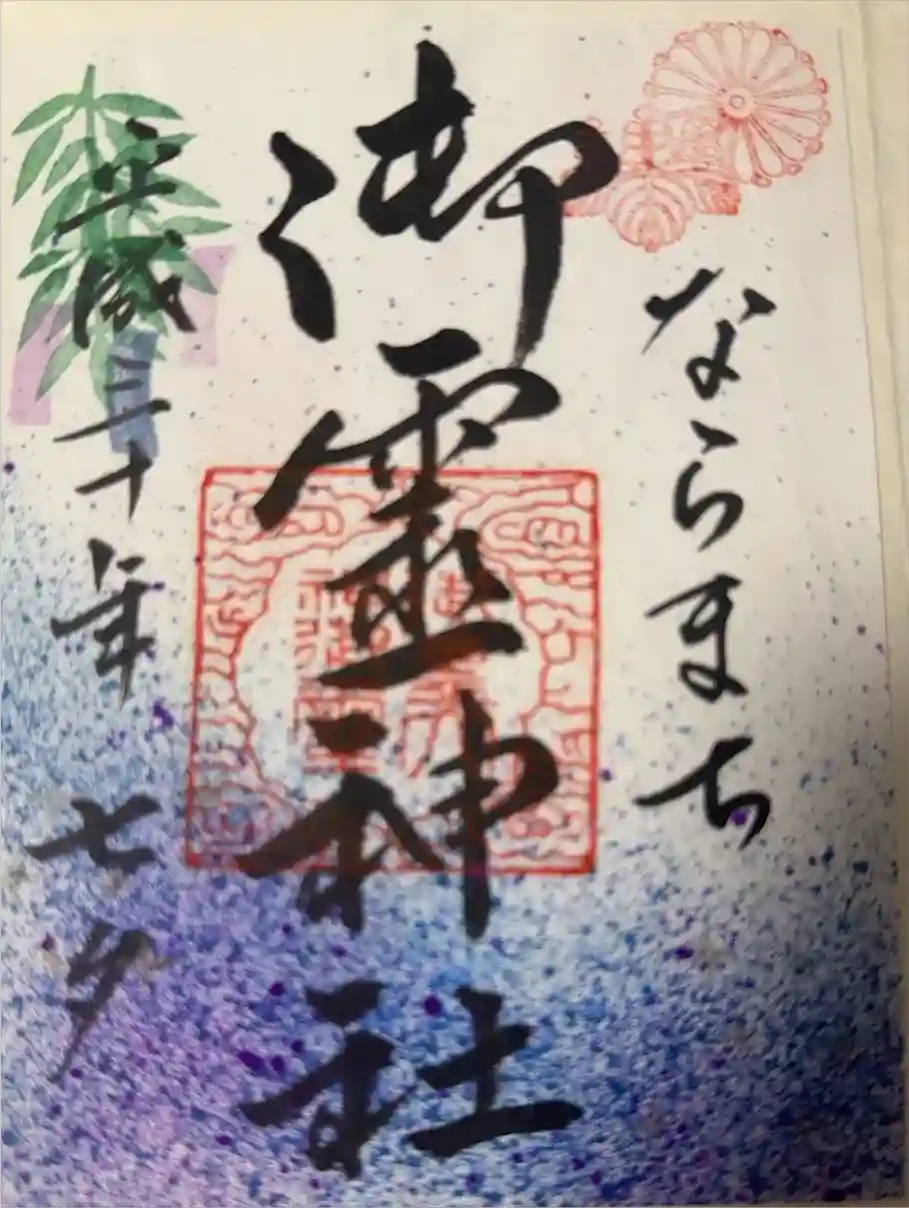 ならまち
御霊神社
平成三十年 七夕